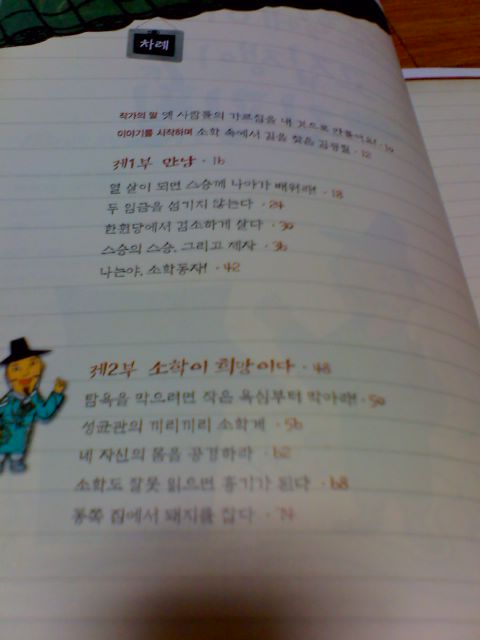 차례
작가의 말 옛 사람들의 가르침을 내 것으로 만들어요! · 10
이야기를 시작하며 소학 속에서 길을 찾은 김굉필 · 12
제1부 만남 · 16
열 살이 되면 스승께 나아가 배워라! · 18
두 임금을 섬기지 않는다 · 24
한훤당에서 검소하게 살다 · 30
스승의 스승, 그리고 제자 · 36
나는야, 소학동자! · 42
제2부 소학이 희망이다 · 48
탐욕을 막으려면 작은 욕심부터 막아라! · 50
성균관의 끼리끼리 소학계 · 56
네 자신의 몸을 공경하라 · 62
소학도 잘못 읽으면 흉기가 된다 · 68
동쪽 집에서 돼지를 잡다 · 74